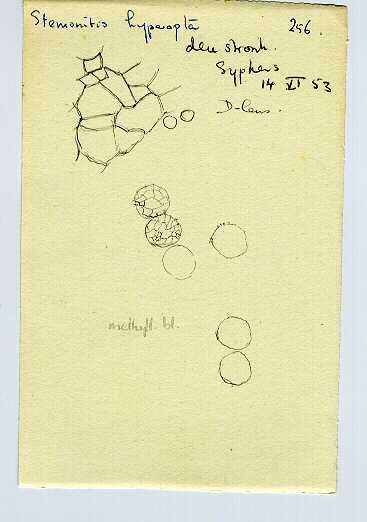 Stemonitis hyperopta 256.
den stronk.
Syphens
14 VI 53
D-lens.
methyl. bl.